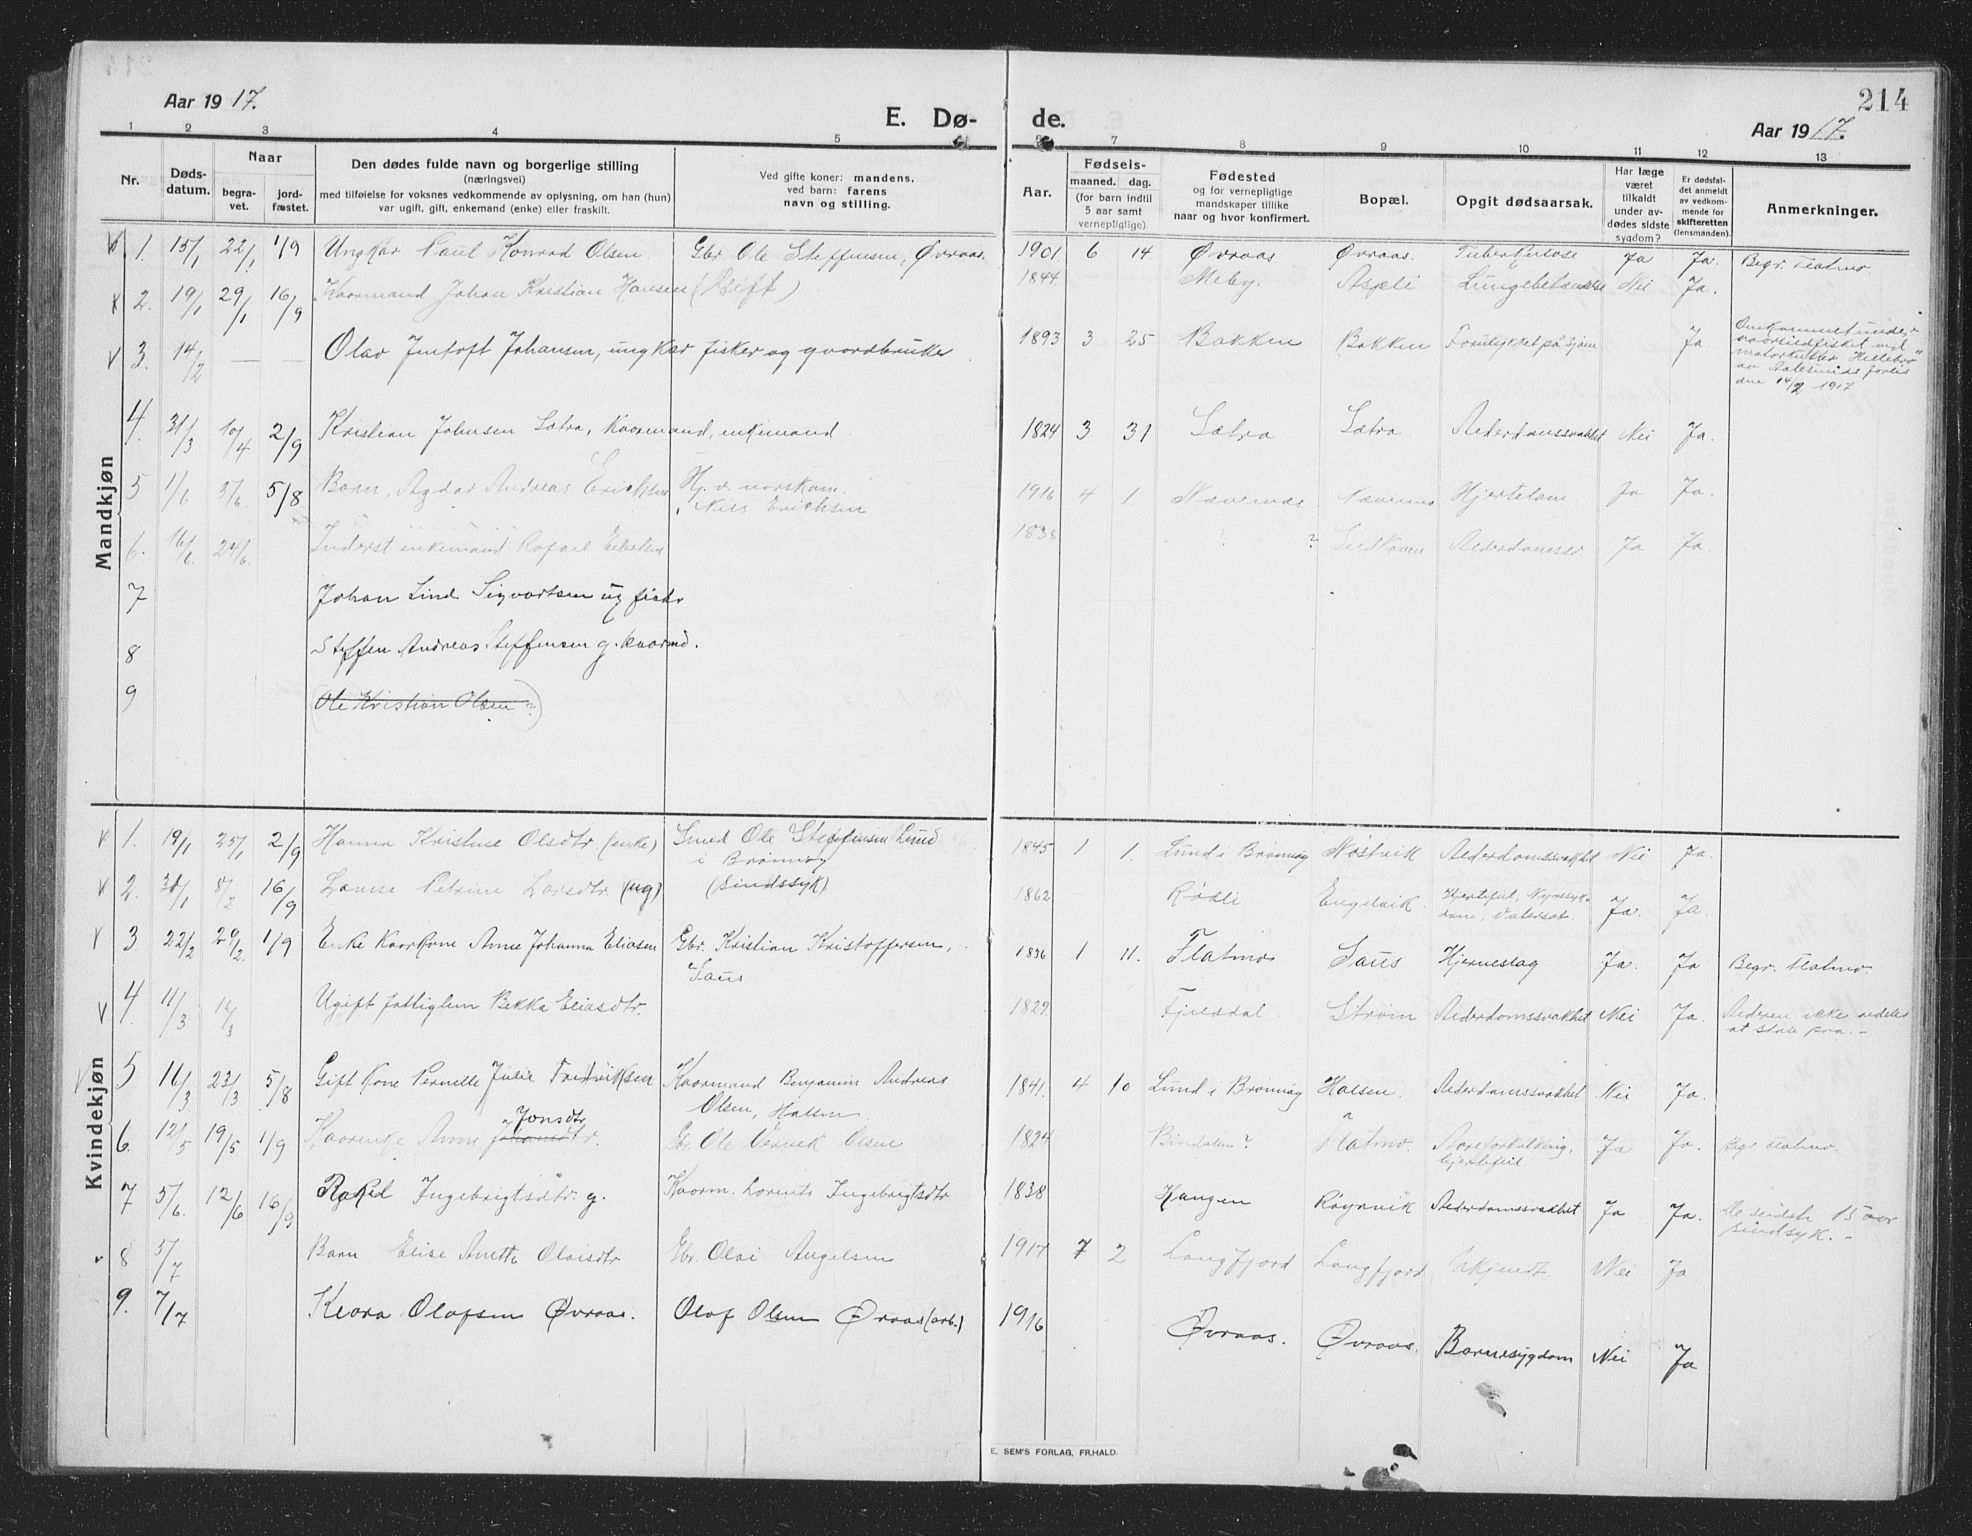 214
Aar 1917.
E. Dø- de.
Aar 1917.
1 2 3 4 5 7 8 9 10 11 12 13
Nr.
Døds-
datum.
Naar
begra-
vet.
jord-
fæstet.
Den dødes fulde navn og borgerlige stilling
(næringsvei)
med tilføielse for voksnes vedkommende av oplysning, om han (hun)
var ugift, gift, enkemand (enke) eller fraskilt.
Ved gifte koner: mandens,
ved barn: farens
navn og stilling.
Aar.
Fødsels-
maaned. dag.
(for barn indtil
5 aar samt
vernepligtige).
Fødested
og for vernepligtige
mandskaper tillike
naar og hvor konfirmert.
Bopæl.
Opgit dødsaarsak.
Har læge
været
tilkaldt
under av-
dødes sidste
sygdom?
Er dødsfal-
det anmeldt
av vedkom-
mende for
skifteretten
(lensmanden).
Anmerkninger.
Mandkjøn
1. 15/1 22/1 1/9 Ungkar Paul Konrad Olsen. Gbr. Ole Steffensen, Øvraas. 1901. 6 14 Øvraas Øvraas. Tuberkulose Ja Ja. Begr. Flatmo.
2. 19/1 29/1 16/9 Kaarmand Johan Kristian Hansen (Gift) 1844. Meby. Aspli Lungebetændelse Nei Ja.
3. 14/2 — — Olav Jentoft Johansen, ungkar fisker og gaardbruker 1893 3 25 Bakken Bakken Forulykket på sjøen Ja
Omkommet under
vaarsildfisket ved
motorkutter "Hellebro"
av Aalesunds forlis
den 14/2 1917
4. 31/3 10/4 2/9 Kristian Johnsen Sætra, Kaarmand, enkemand 1824 3 31 Sætra Sætra Alderdomssvakhet Nei Ja.
5 1/6 5/6. 5/8 Barn, Agdar Andreas Eriksen Hj. v. norskam.
Nils Erichsen 1916 4 1. Nævernes Nævernes Hjertelam. Ja Ja.
6. 16/6 24/6. Inderst enkemand Rafael Eilertsen 1838 ? ? Alderdomssv. Ja Ja.
7 Johan Lind Sigvartsen ug fisker
8 Steffen Andreas Steffensen g. kaarmd.
9 (Ole Kristian Olsen ?)
Kvindekjøn
1. 19/1 25/1 2/9 Hanna Kristine Olsdtr (enke) Smed Ole Steffensen Lund
i Brønnøy 1845 1 1. Lund i Brønnøy Nøstvik Alderdomssvakhet Nei Ja.
2. 30/1 8/2. 16/9 Lovise Petrine Larsdtr. (ug) (Sindssyk) 1862 Rødli Engelvik. Hjertefeil, Nyresyk-
dom, Vatersot. Ja. Ja.
3. 22/2 29/2. 1/9 Enke Kaarkone Anne Johanna Eliasen Gbr. Kristian Kristoffersen,
Saus 1836 1 11. Flatmo Saus Hjerneslag Ja. Ja Begr. Flatmo.
4. 11/3 14/3 Ugift fattiglem Bekka Eliasdtr. 1829. Fjelddal. Strøm Alderdomssvakhet Nei Ja. Alderen ikke
at stole paa. -
5 16/3 23/3 5/8 Gift Kone Pernille Julie Fredriksen Kaarmand Benjamin Andreas
Olsen, Halsen. 1841. 4 10 Lund i Brønnøy Halsen. Alderdomssvakhet Nei Ja.
6. 12/5 19/5 1/9 Kaarenke Anne Johansdtr. Jonsdtr Gbr. Ole Vernek Olsen 1824 Bindalen ? Flatmo. Aareforkalkning,
hjertefeil Ja Ja. Begr. Flatmo.
7 5/6. 12/6 16/9 Rakel Ingebrigtsdtr. g. Kaarm. Lorents Ingebrigtsdtr 1838 Hangen Røyrvik Alderdomssvakhet Ja Ja. De sidste 15 aar
sindsyk. -
8 5/7 Barn Elise Anette Olaisdtr Gbr. Olai Angelsen 1917 7 2 Langfjord Langfjord Ukjendt Nei Ja
9. 7/7 Klara Olafsen Øvraas. Olaf Olsen Øvraas (arb.) 1916 Øvraas. Øvraas. Barnesygdom Nei Ja
E. SEM'S FORLAG, FR.HALD.